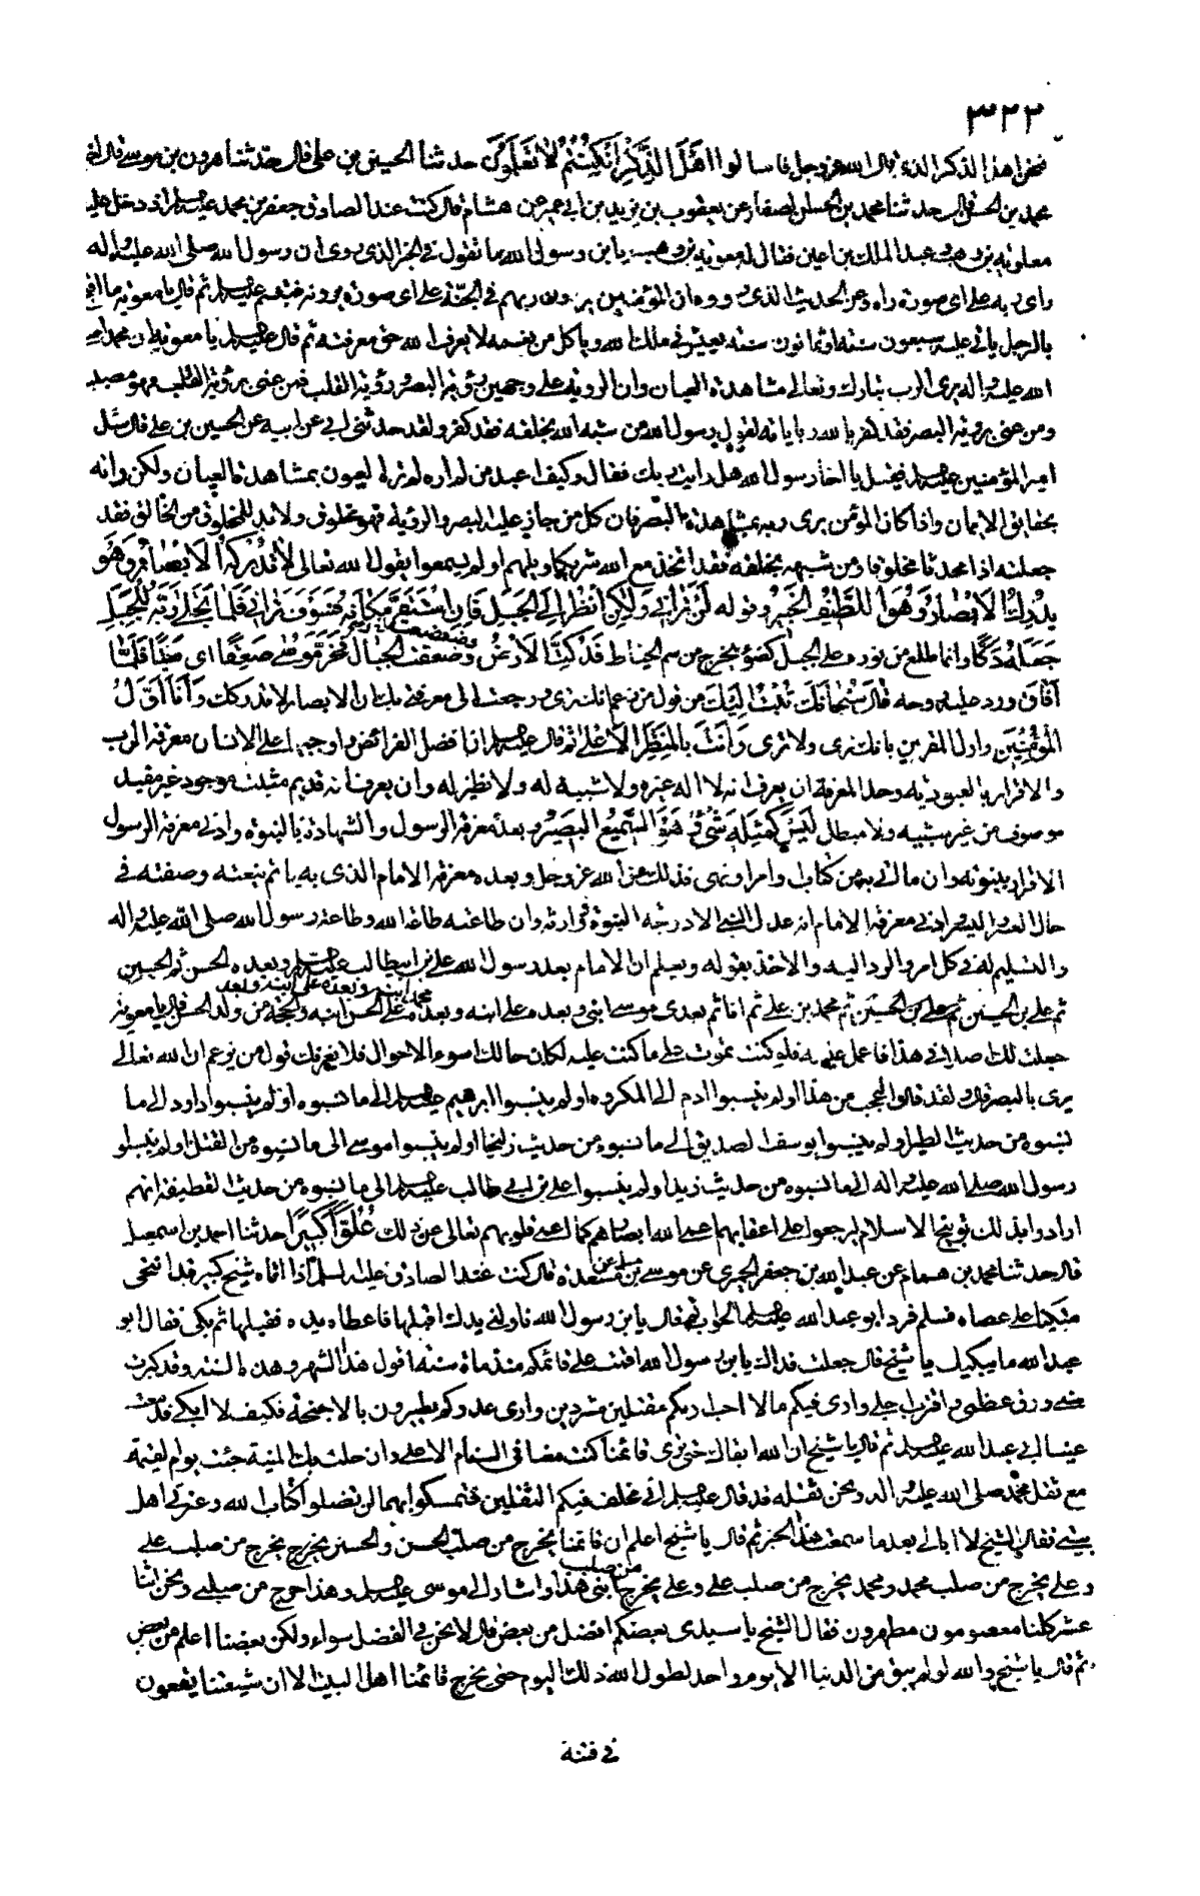 ٣٢٢
فنحن اهذا الذكر الذى قال الله عز وجل فاسالوا اَهْلَ الذِّكْرِ اِنْ كُنْتُمْ لَا تَعْلَمُونَ حدثنا الحسين بن على قال حدثنا هرون بن موسى قال
محمد بن الحسن قال حدثنا محمد بن الحسن الصفار عن يعقوب بن يزيد عن ابى عمير عن هشام قال كنت عند الصادق جعفر بن محمد عليه السلم اذ دخل عليه
معاوية بن وهب وعبد الملك بن اعين فقال له معوية بن وهب يا بن رسول الله ما تقول فى الخبر الذى روى ان رسول الله صلى الله عليه واله
راى ربه على اى صورة راه وعن الحديث الذى رووه ان المؤمنين يرون ربهم فى الجنة على اى صورة يرونه فتبسم عليه السلم ثم قال يا معوية ما اقبح
بالرجل ياتى عليه سبعون سنة او ثمانون سنة يعيش فى ملك الله وياكل من نعمه لا يعرف الله حق معرفته ثم قال عليه السلم يا معوية ان محمدا صلى
الله عليه واله لم يرى الرب تبارك وتعالى مشاهدة العيان وان الروية على وجهين رؤية البصر ورؤية القلب فمن عنى برؤية القلب فهو مصيب
ومن عنى بروية البصر فقد كفر بالله وباياته لقول رسول الله من شبه الله بخلقه فقد كفر ولقد حدثنى ابى عن ابيه عن الحسين بن على قال سئل
امير المؤمنين عليه السلم فقيل يا اخا رسول الله هل رايت ربك فقال وكيف اعبد من لم اره لم تره العيون بمشاهدة العيان ولكن راته
بحقايق الايمان واذا كان المؤمن يرى ربه بمشاهدة البصر فان كل من جاز عليه البصر والرؤية فهو مخلوق ولا بد للمخلوق من الخالق فقد
جعلته اذا محدثا مخلوقا ومن شبهه بخلقه فقد اتخذ مع الله شريكا ويلهم اولم يسمعوا يقول الله تعالى لَا تُدْرِكُهُ الْاَبْصَارُ وَهُوَ
يُدْرِكُ الْاَبْصَارَ وَهُوَ اللَّطِيفُ الْخَبِيرُ وقوله لَنْ تَرَانِى وَلَكِنِ انْظُرْ اِلَى الْجَبَلِ فَاِنِ اسْتَقَرَّ مَكَانَهُ فَسَوْفَ تَرَانِى فَلَمَّا تَجَلَّى رَبُّهُ لِلْجَبَلِ
جَعَلَهُ دَكًّا وانما طلع من نوره على الجبل كضوء يخرج من سم الخياط فدكت الارض وضعضعت الجبال فَخَرَّ مُوسَى صَعِقًا اى ميتا فَلَمَّا
اَفَاقَ ورد عليه روحه قَالَ سُبْحَانَكَ تُبْتُ اِلَيْكَ من قول من زعم انك ترى ورجعت الى معرفتى بك ان الابصار لا تدركك وَاَنَا اَوَّلُ
الْمُؤْمِنِينَ واول المقرين بانك ترى ولا ترى وَاَنْتَ بِالْمَنْظَرِ الْاَعْلَى ثم قال عليه السلم ان افضل الفرائض واوجبها على الانسان معرفة الرب
والاقرار بالعبودية وحد المعرفة ان يعرف انه لا اله غيره ولا شبيه له ولا نظير له وان يعرف انه قديم مثبت موجود غير فقيد
موصوف من غير شبيه ولا مبطل لَيْسَ كَمِثْلِهِ شَىْءٌ وَهُوَ السَّمِيعُ الْبَصِيرُ وبعده معرفة الرسول والشهادة بالنبوة وادنى معرفة الرسول
الاقرار بنبوته وان ما اتى به من كتاب وامر او نهى فذلك من الله عز وجل وبعده معرفة الامام الذى به ياتم بنعته وصفته فى
حال العسر واليسر ادنى معرفة الامام انه عدل النبى الا درجة النبوة ووارثه وان طاعته طاعة الله وطاعة رسول الله صلى الله عليه واله
والتسليم له فى كل امر والرد اليه والاخذ بقوله ويعلم ان الامام بعد رسول الله على بن ابيطالب عليه السلم وبعده الحسن ثم الحسين
ثم على بن الحسين ثم محمد بن على ثم انا ثم بعدى موسى ابنى وبعده على ابنه وبعده محمد ابنه وبعده على ابنه وبعد على الحسن ابنه والحجة من ولد الحسن قال يا معوية
جعلت لك اصلا فى هذا فاعمل عليه فلو كنت تموت على ما كنت عليه لكان حالك اسوء الاحوال فلا يغرنك قول من يزعم ان الله تعالى
يرى بالبصر قال ولقد قالوا اعجب من هذا اولم ينسبوا ادم الى المكروه اولم ينسبوا ابرهيم عليه السلم الى ما نسبوه اولم ينسبوا داود الى ما
نسبوه من حديث الطير اولم ينسبوا يوسف الصديق الى ما نسبوه من حديث زليخا اولم ينسبوا موسى الى ما نسبوه من القتل اولم ينسبوا
رسول الله صلى الله عليه واله الى ما نسبوه من حديث زيد اولم ينسبوا على بن ابى طالب عليه السلم الى ما نسبوه من حديث القطيفة انهم
ارادوا بذلك توبيخ الاسلام ليرجعوا على اعقابهم اعمى الله ابصارهم كما اعمى قلوبهم تعالى عن ذلك عُلُوًّا كَبِيرًا حدثنا احمد بن اسمعيل
قال حدثنا محمد بن همام عن عبد الله بن جعفر الحميرى عن موسى بن مسلم عن مسعدة قال كنت عند الصادق عليه السلم اذ اتاه شيخ كبير قد انحنى
متكئا على عصاه فسلم فرد ابو عبد الله عليه السلم الجواب ثم قال يا بن رسول الله ناولنى يدك اقبلها فاعطاه يده فقبلها ثم بكى فقال ابو
عبد الله ما يبكيك يا شيخ قال جعلت فداك يا بن رسول الله اقمت على قائمكم منذ ماة سنة اقول هذا الشهر وهذه السنة وقد كبرت
سنى ورق عظمى واقترب اجلى وارى فيكم ما لا احب اريكم مقتلين مشردين وارى عدوكم يطيرون بالاجنحة فكيف لا ابكى فدمعت
عينا ابى عبد الله عليه السلم ثم قال يا شيخ ان الله ابقاك حتى ترى قائمنا كنت معنا فى السنام الاعلى وان حلت بك المنية جئت يوم القيمة
مع ثقل محمد صلى الله عليه واله ونحن ثقله فقد قال عليه السلم انى مخلف فيكم الثقلين فتمسكوا بهما لن تضلوا كتاب الله وعترتى اهل
بيتى فقال الشيخ لا ابالى بعد ما سمعت هذا الخبر ثم قال يا شيخ اعلم ان قائمنا يخرج من صلب الحسن والحسن يخرج يخرج من صلب على
وعلى يخرج من صلب محمد ومحمد يخرج من صلب على وعلى يخرج من صلب ابنى هذا واشار الى موسى عليه السلم وهذا خرج من صلبى ونحن اثنا
عشر كلنا معصومون مطهرون فقال الشيخ يا سيدى بعضكم افضل من بعض قال لا نحن فى الفضل سواء ولكن بعضنا اعلم من بعض
ثم قال يا شيخ والله لو لم يبق من الدنيا الا يوم واحد لطول الله ذلك اليوم حتى يخرج قائمنا اهل البيت الا ان شيعتنا يقعون
فى فتنة